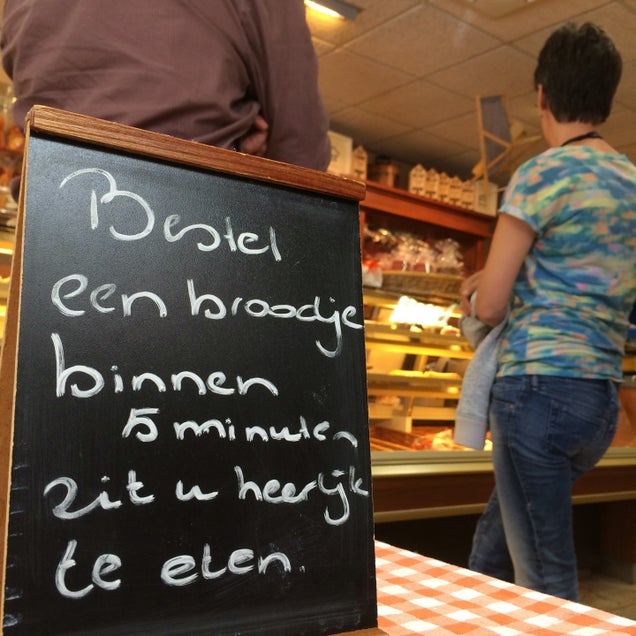 Bestel
een broodje
binnen
5 minuten
zit u heerlijk
te eten.